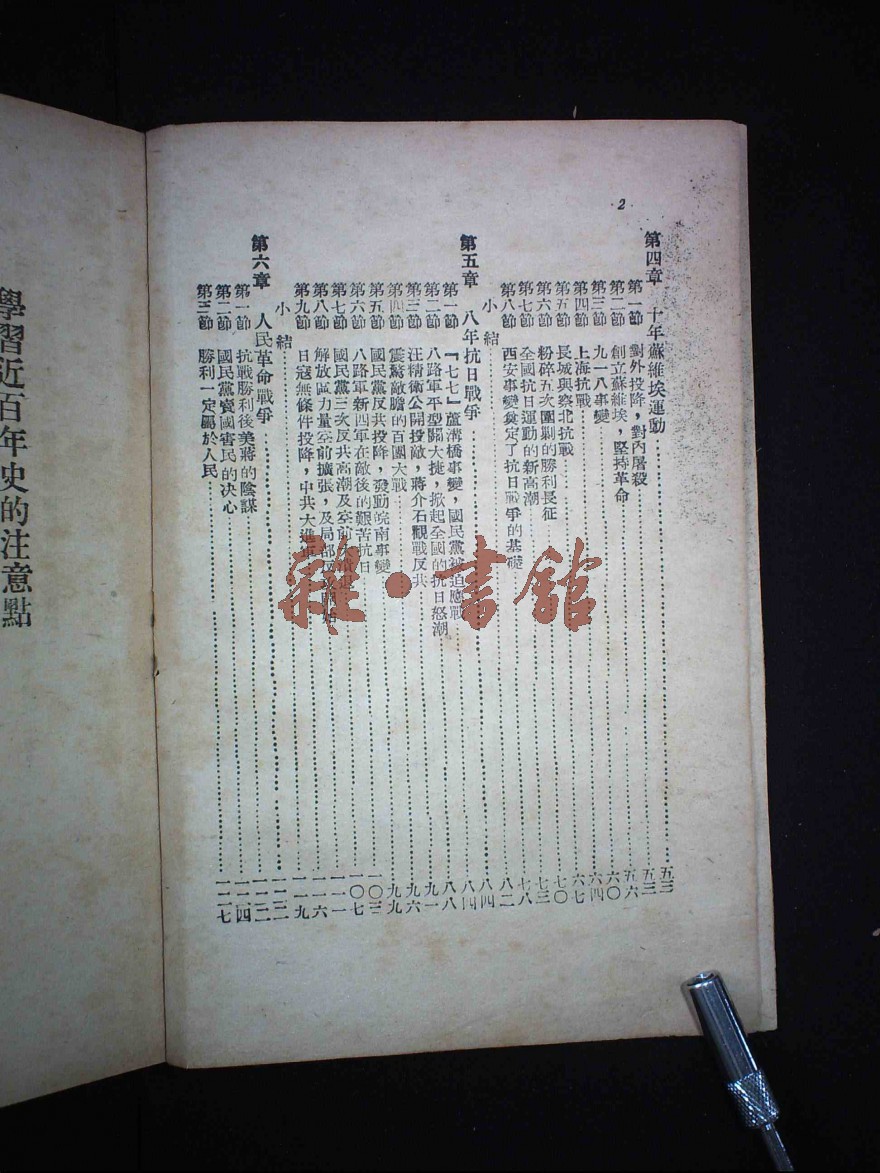 2
第四章　十年蘇維埃運動……五三
第一節　對外投降，對內屠殺……五三
第二節　創立蘇維埃，堅持革命……五六
第三節　九一八事變……六〇
第四節　上海抗戰……六四
第五節　長城與察北抗戰……六七
第六節　粉碎五次團剿的勝利長征……七〇
第七節　全國抗日運動的新高潮……七三
第八節　西安事變奠定了抗日戰爭的基礎……七八
小結……八二
第五章　八年抗日戰爭……八四
第一節　『七七』蘆溝橋事變，國民黨被迫應戰……八四
第二節　八路軍平型關大捷，掀起全國的抗日怒潮……八八
第三節　汪精衛公開投敵，蔣介石觀戰反共……九一
第四節　震驚敵膽的百團大戰……九六
第五節　國民黨反共投降，發動皖南事變……九九
第六節　八路軍新四軍在敵後的艱苦抗日……一〇三
第七節　國民黨三次反共高潮及空前……一〇七
第八節　解放區力量空前擴張，及局部反攻開始……一一一
第九節　日寇無條件投降，中共大進軍……一一六
小結……一一九
第六章　人民革命戰爭……一二二
第一節　抗戰勝利後美蔣的陰謀……一二二
第二節　國民黨賣國害民的决心……一二四
第三節　勝利一定屬於人民……一二七
學習近百年史的注意點
雜·書館